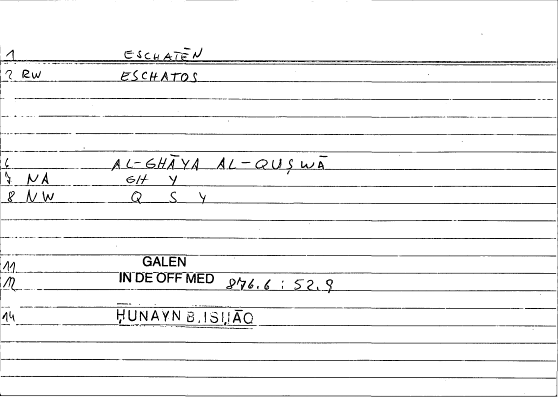 1 ESCHATĒN
2 RW ESCHATOS
6 AL-GHĀYA AL-QUṢWĀ
7 NA GH Y
8 NW Q S Y
11 GALEN
12 IN DE OFF MED 876.6 : 52.9
14 ḤUNAYN B. ISḤĀQ